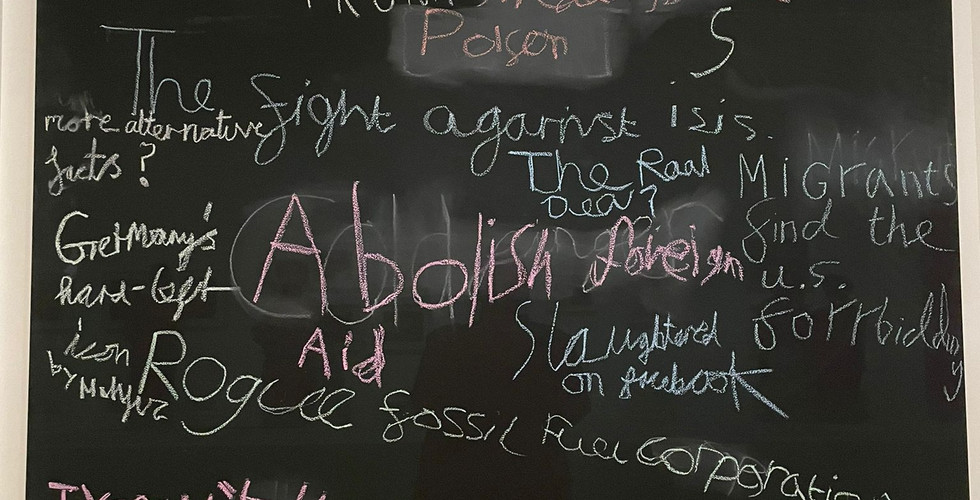 Poison
S
The fight against isis.
more alternative
facts?
The Raal
Deal?
Migrants
find the
u.s.
forrbidding
Germany's
hard-left
icon
Abolish foreign
Aid
Slaughtered
on facebook
Rogue fossil Fuel corporation